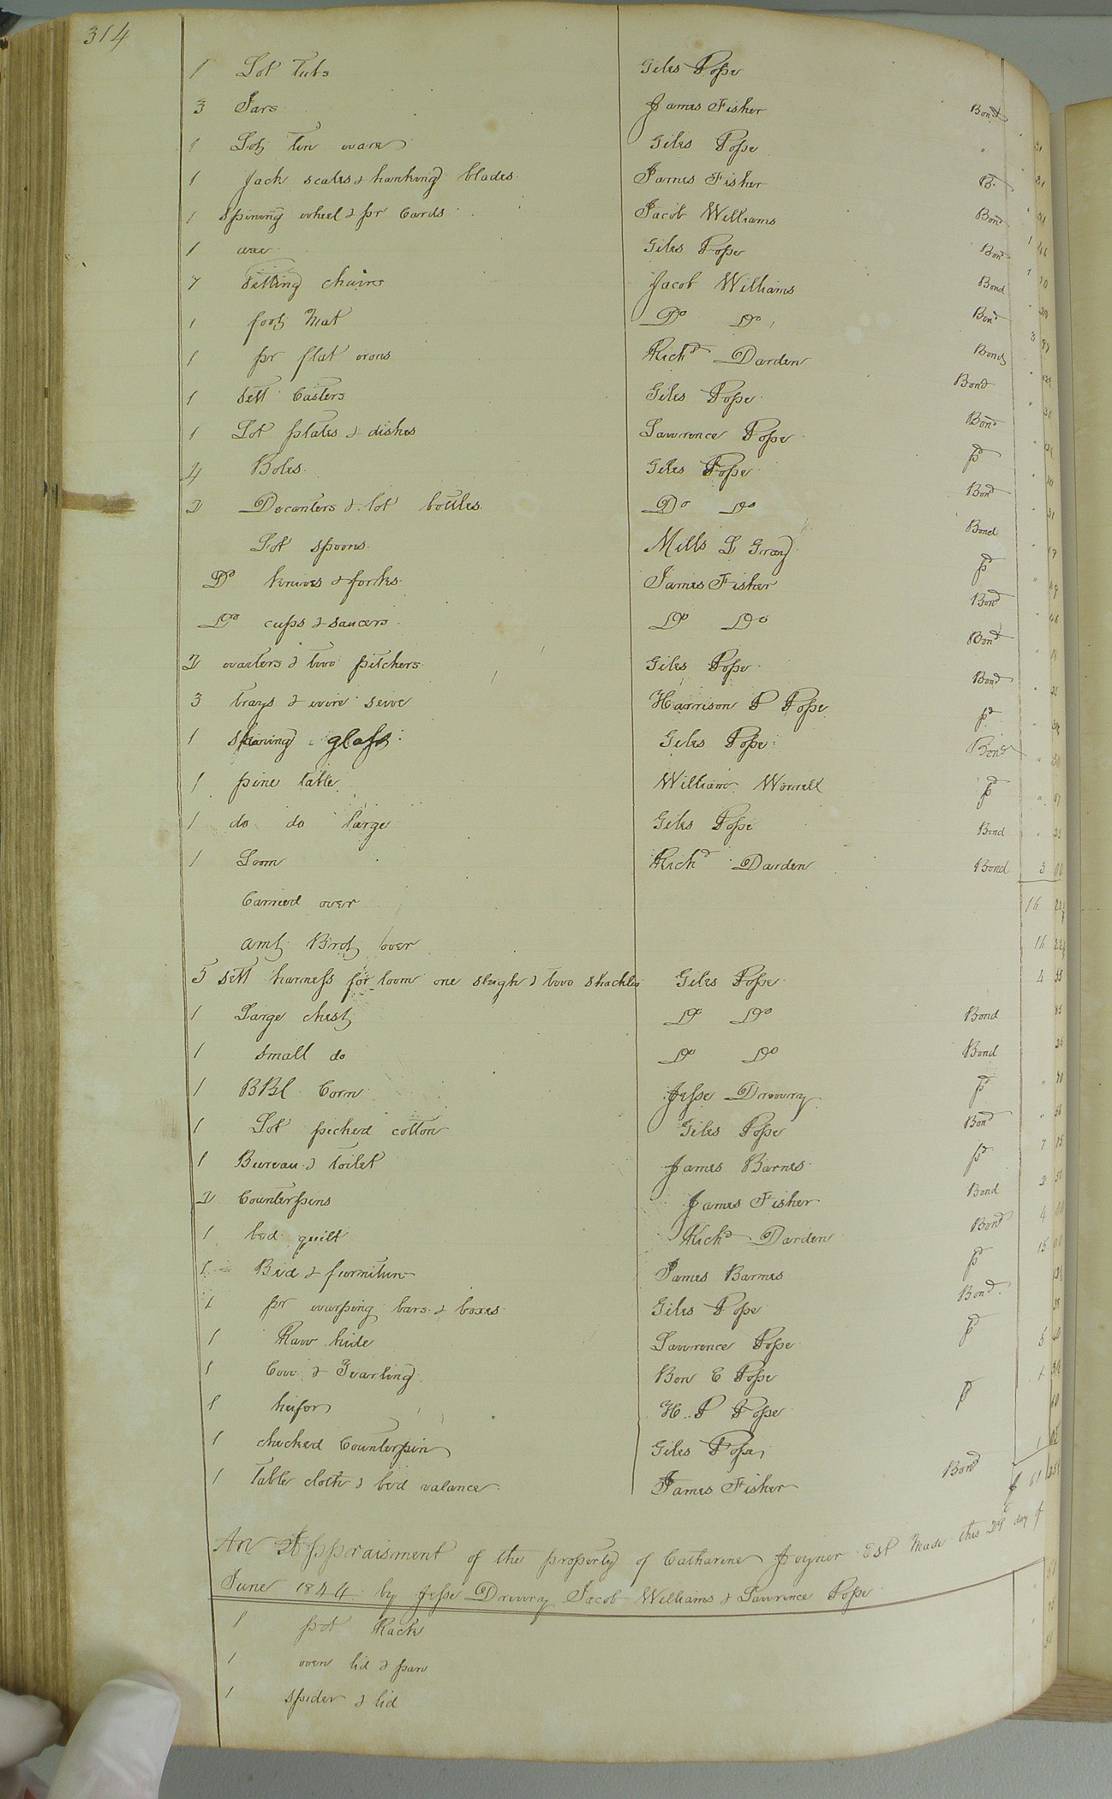 314
1 Lot Tubs Giles Pope
3 Jars James Fisher Bond
1 Lot tin ware Giles Pope
1 Jack scales & hanking blades James Fisher B.
1 Spining wheel & pr Cards Jacob Williams Bond
1 axe Giles Pope Bond
7 Sitting chairs Jacob Williams Bond
1 foot Mat Do Do Bond
1 pr flat irons Richd Darden Bond
1 Sett Casters Giles Pope Bond
1 Lot plates & dishes Lawrence Pope Bond
4 Boles Giles Pope pd
2 Decanters & lot bottles Do Do Bond
Lot spoons Mills L Gray Bond
Do knives & forks James Fisher pd
Do cups & saucers Do Do Bond
2 waiters & two pitchers Giles Pope Bond
3 trays & wire seive Harrison P Pope Bond
1 shaving glass Giles Pope pd
1 pine table William Worrell Bond
1 do do large Giles Pope pd Bond
1 Loom Richd Darden Bond 3
Carried over 16
amt Brot over 16
5 sett harness for loom one sleigh & two shackles Giles Pope 4
1 Large chest Do Do Bond
1 small do Do Do Bond
1 BBl Corn Jesse Drewry pd
1 Lot picked cotton Giles Pope Bond
1 Bureau & toilet James Barnes pd 7
2 Counterpins James Fisher Bond 2
1 bed quilt Richd Darden Bond 4
1 Bed & furniture James Barnes pd 15
1 pr warping bars & boxes Giles Pope Bond
1 Raw hide Lawrence Pope pd
1 Cow & Yearling Ben E Pope 5
1 heifer H. P Pope pd
1 checked Counterpin Giles Pope
1 Table cloth & bed valance James Fisher Bond 61
An Appraisment of the property of Catharine Joyner Est Made this day of
June 1844 by Jesse Drewry Jacob Williams & Lawrence Pope
1 pot Rack
1 oven lid & pan
1 spider & lid